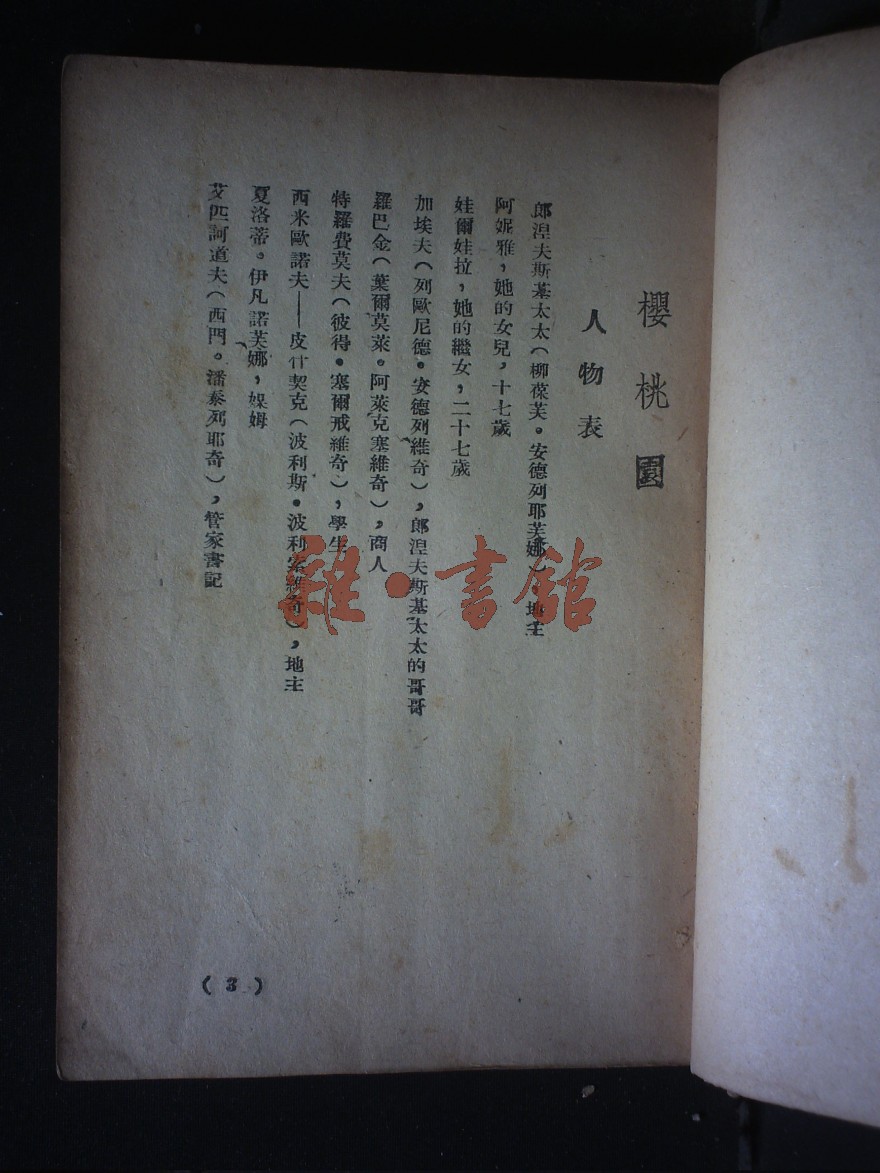 櫻桃園
人物表
郎湼夫斯基太太（柳葆芙。安德列耶芙娜），地主
阿妮雅，她的女兒，十七歲
娃爾娃拉，她的繼女，二十七歲
加埃夫（列歐尼德。安德列維奇），郎湼夫斯基太太的哥哥
羅巴金（葉爾莫萊。阿萊克塞維奇），商人
特羅費莫夫（彼得。塞爾戒維奇），學生
西米歐諾夫——皮什契克（波利斯。波利索維奇），地主
夏洛蒂。伊凡諾芙娜，媬姆
艾匹訶道夫（西門。潘泰列耶奇），管家書記
（3）
雜·書館